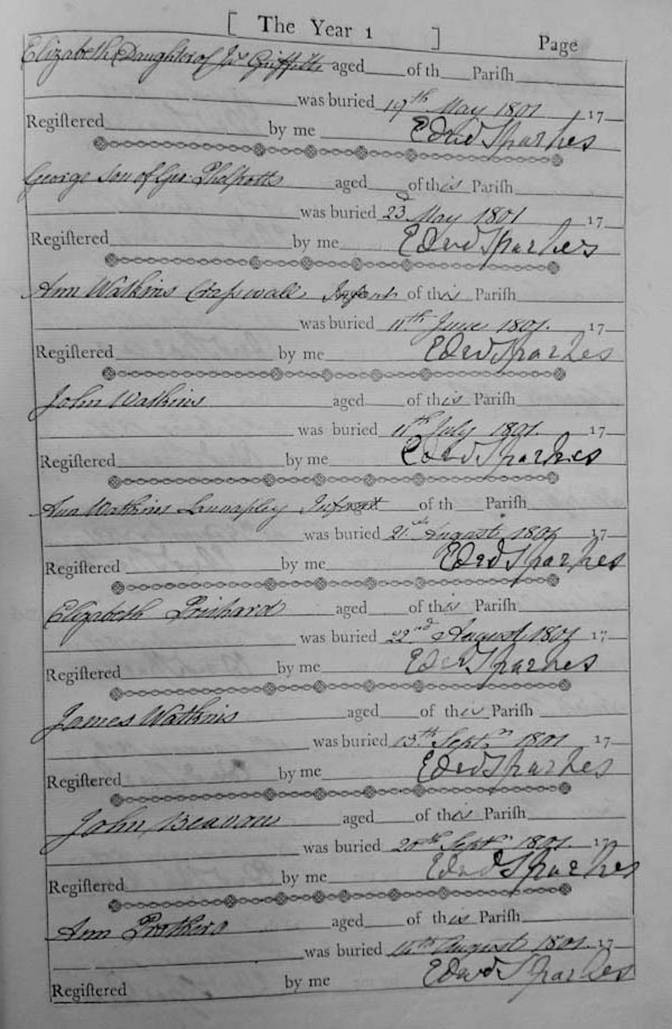 [ The Year 1 ] Page
Elizabeth Daughter of Jas Griffiths aged of th Pariſh
was buried 19th May 1801 17
Regiſtered by me Edwd Sparkes
George Son of Geo: Philpotts aged of this Pariſh
was buried 23d May 1801 17
Regiſtered by me Edwd Sparkes
Ann Watkins Infant of this Pariſh
was buried 11th June 1801. 17
Regiſtered by me Edwd Sparkes
John Watkins aged of this Pariſh
was buried 11th July 1801. 17
Regiſtered by me Edwd Sparkes
Ann Watkins Infant of th Pariſh
was buried 21st August 1801 17
Regiſtered by me Edwd Sparkes
Elizabeth Prichard aged of this Pariſh
was buried 22nd August 1801 17
Regiſtered by me Edwd Sparkes
James Watkins aged of this Pariſh
was buried 13th Septr 1801 17
Regiſtered by me Edwd Sparkes
John Beavan aged of this Pariſh
was buried 20th Septr 1801. 17
Regiſtered by me Edwd Sparkes
Ann Prothero aged of this Pariſh
was buried August 1801. 17
Regiſtered by me Edwd Sparkes